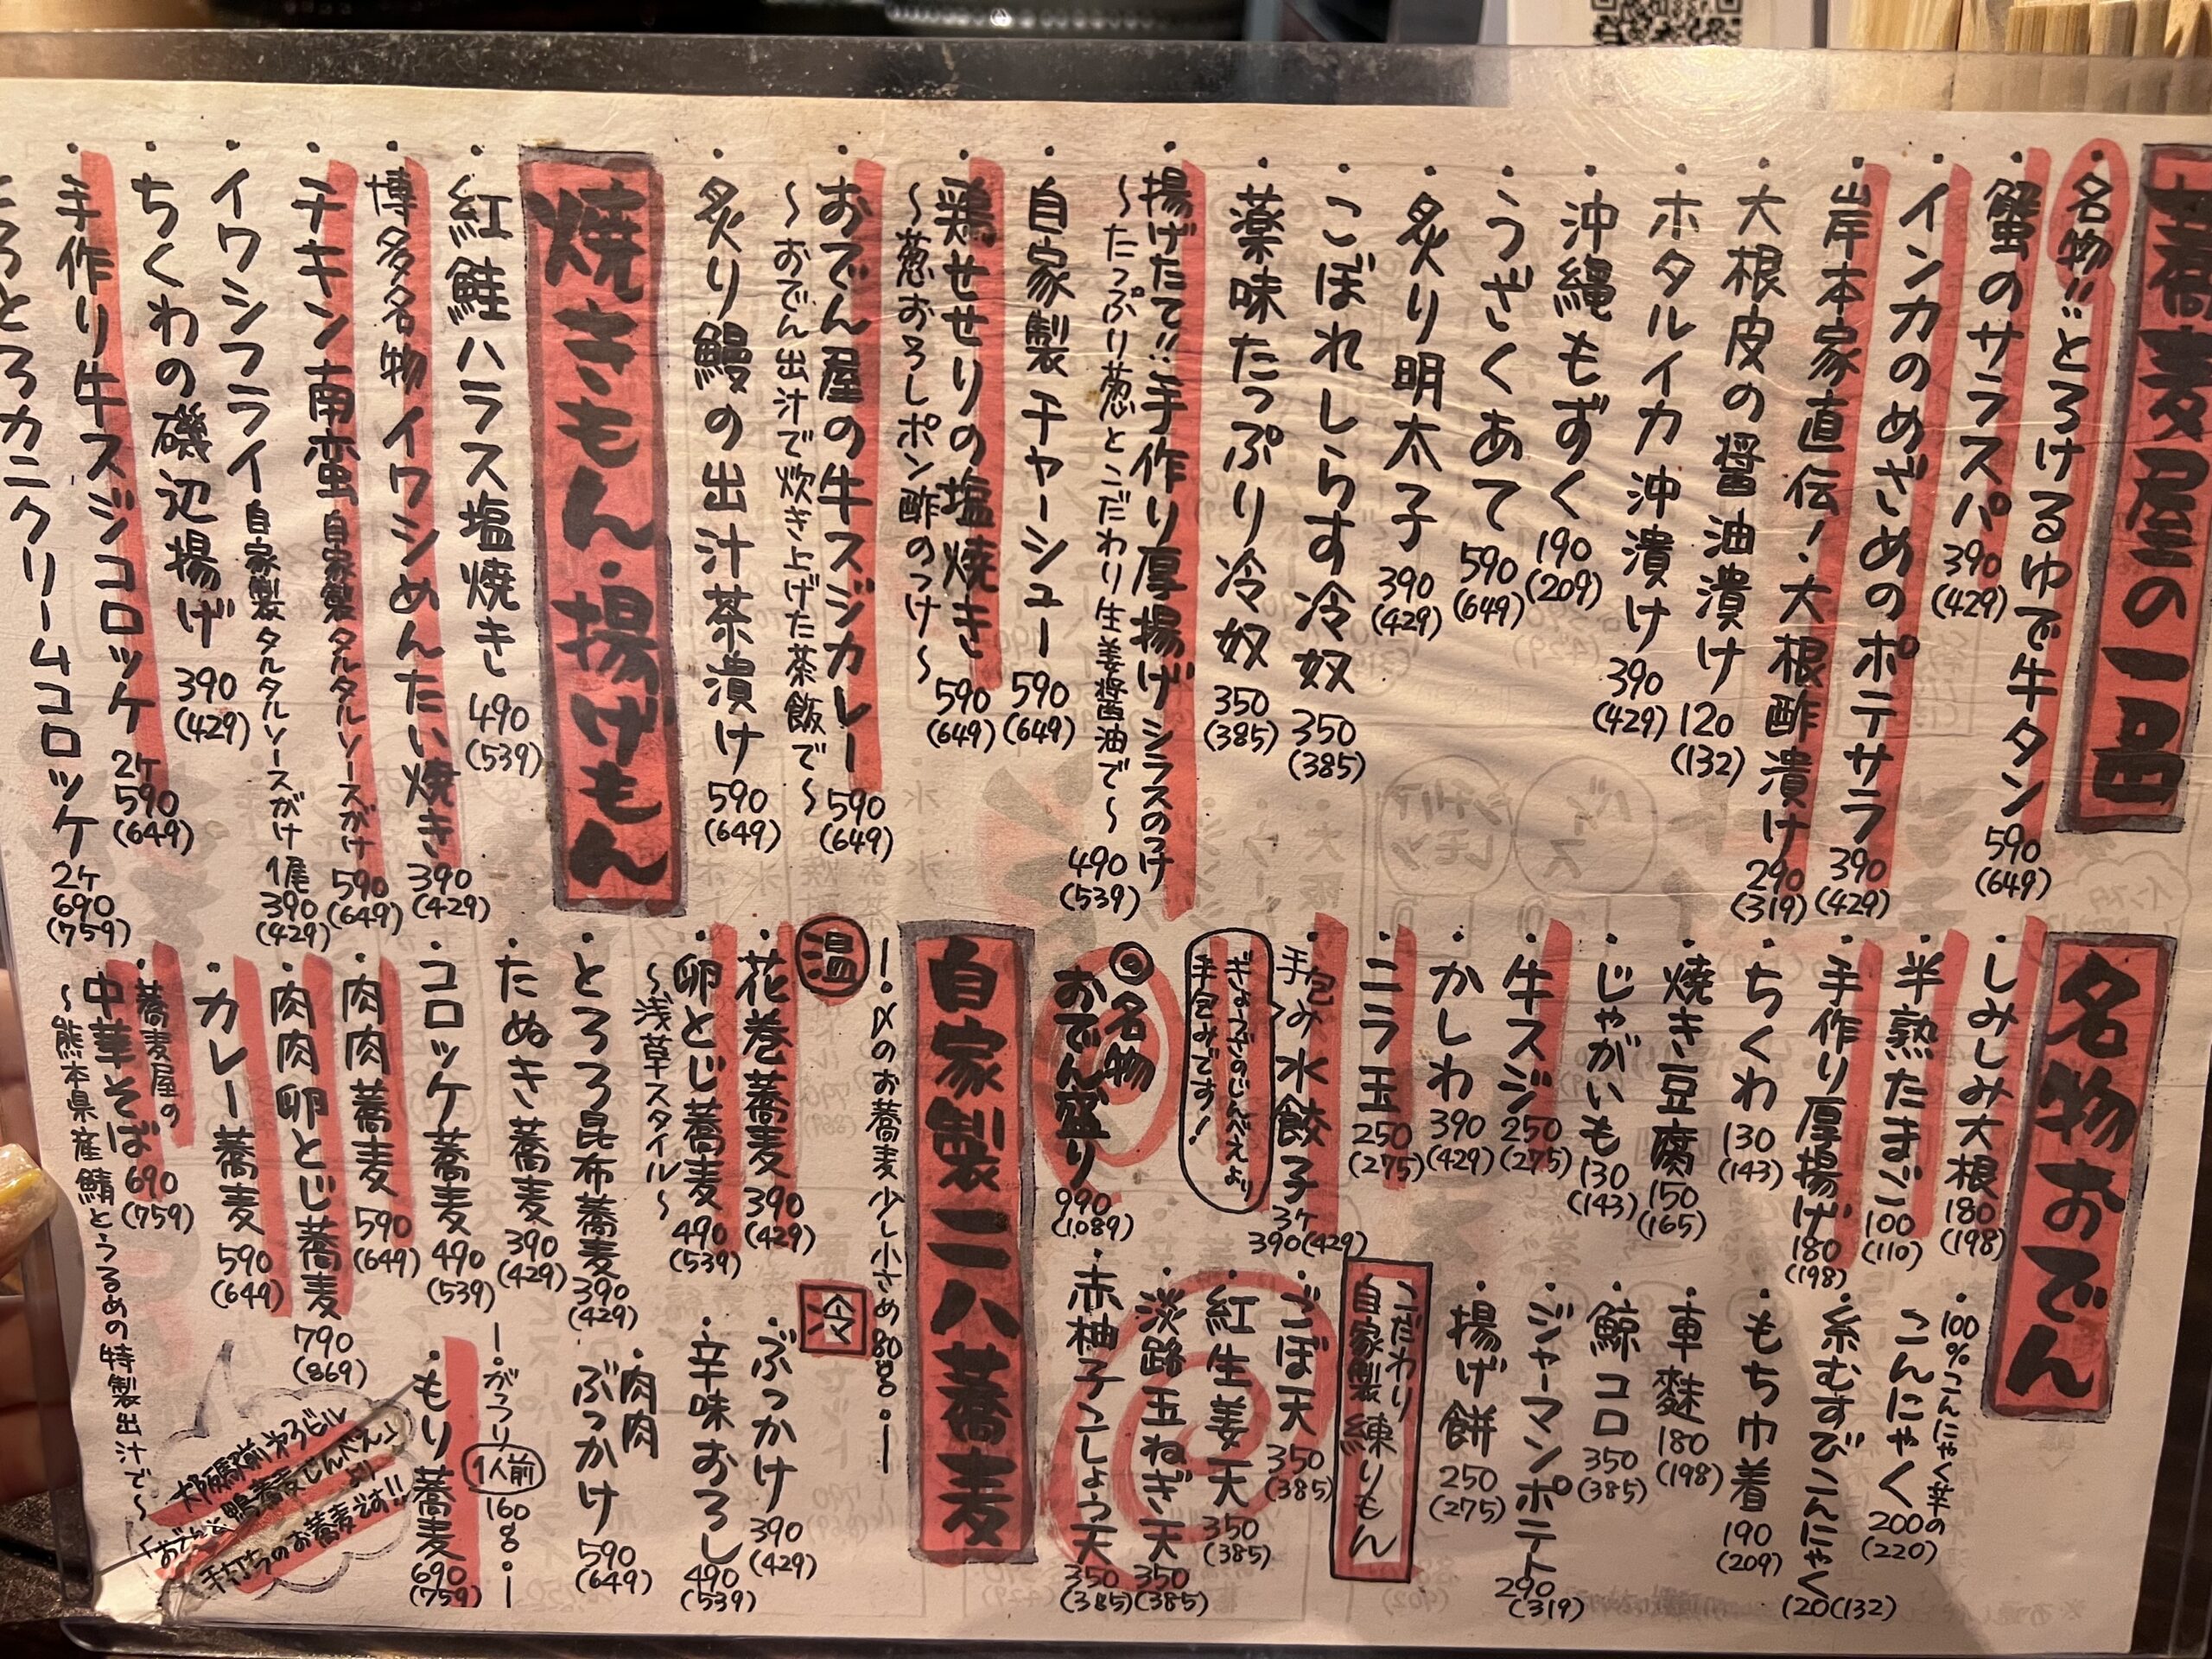 蕎麦屋の一品
・名物!!とろけるゆで牛タン 590 (649)
・蟹のサラスパ 390 (429)
・インカのめざめのポテサラ 390 (429)
・岸本家直伝!大根酢漬け 290 (319)
・大根皮の醤油漬け 120 (132)
・ホタルイカ沖漬け 390 (429)
・沖縄もずく 190 (209)
・うざくあて 590 (649)
・炙り明太子 390 (429)
・こぼれしらす冷奴 350 (385)
・薬味たっぷり冷奴 350 (385)
・揚げたて!!手作り厚揚げシラスのつけ 490 (539)
〜たっぷり葱とこだわり生姜醤油で〜
・自家製チャーシュー 590 (649)
・鶏せせりの塩焼き 590 (649)
〜葱おろしポン酢のつけ〜
・おでん屋の牛スジカレー 590 (649)
〜おでん出汁で炊き上げた茶飯で〜
・炙り鰻の出汁茶漬け 590 (649)
焼きもん・揚げもん
・紅鮭ハラス塩焼き 490 (539)
・博多名物イワシめんたい焼き 390 (429)
・チキン南蛮 自家製タルタルソースがけ 590 (649)
・イワシフライ 自家製タルタルソースがけ 1尾 390 (429)
・ちくわの磯辺揚げ 390 (429)
・手作り牛スジコロッケ 2ヶ 590 (649)
とろとろカニクリームコロッケ 2ヶ 690 (759)
名物おでん
・しみしみ大根 180 (198)
・半熟たまご 100 (110)
・手作り厚揚げ 180 (198)
・ちくわ 130 (143)
・焼き豆腐 150 (165)
・じゃがいも 130 (143)
・牛スジ 250 (275)
・かしわ 390 (429)
・ニラ玉 250 (275)
・手包み水餃子 3ヶ 390 (429)
ぎょうざのじんべえより
手包みです!
◎名物
おでん盛り 990 (1089)
・100%こんにゃく芋の
こんにゃく 200 (220)
・糸むすびこんにゃく 120 (132)
・もち巾着 190 (209)
・車麩 180 (198)
・鯨コロ 350 (385)
・ジャーマンポテト 290 (319)
・揚げ餅 250 (275)
こだわり
自家製練りもん
・ごぼ天 350 (385)
・紅生姜天 350 (385)
・淡路玉ねぎ天 350 (385)
・赤柚子こしょう天 350 (385)
自家製二八蕎麦
ー・〆のお蕎麦少し小さめ80g・ー
温
・花巻蕎麦 390 (429)
・卵とじ蕎麦 490 (539)
〜浅草スタイル〜
・とろろ昆布蕎麦 390 (429)
・たぬき蕎麦 390 (429)
・コロッケ蕎麦 490 (539)
・肉肉蕎麦 590 (649)
・肉肉卵とじ蕎麦 790 (869)
・カレー蕎麦 590 (649)
・蕎麦屋の
中華そば 690 (759)
〜熊本県産鯖とうるめの特製出汁で〜
冷
・ぶっかけ 390 (429)
・辛味おろし 490 (539)
・肉肉
ぶっかけ 590 (649)
ー・がっつり 1人前 160g・ー
・もり蕎麦 690 (759)
大阪駅前第3ビル
「おでんと鴨蕎麦じんべえ」
より
手打ちのお蕎麦です!!